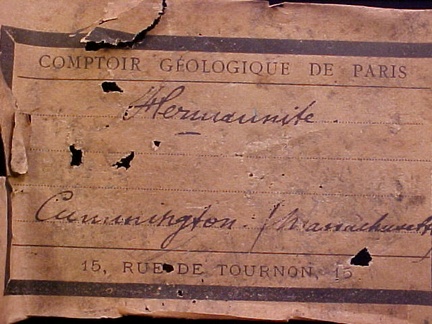 COMPTOIR GÉOLOGIQUE DE PARIS
Hermannite.
Cummington. (Massachusetts
15, RUE DE TOURNON, 15